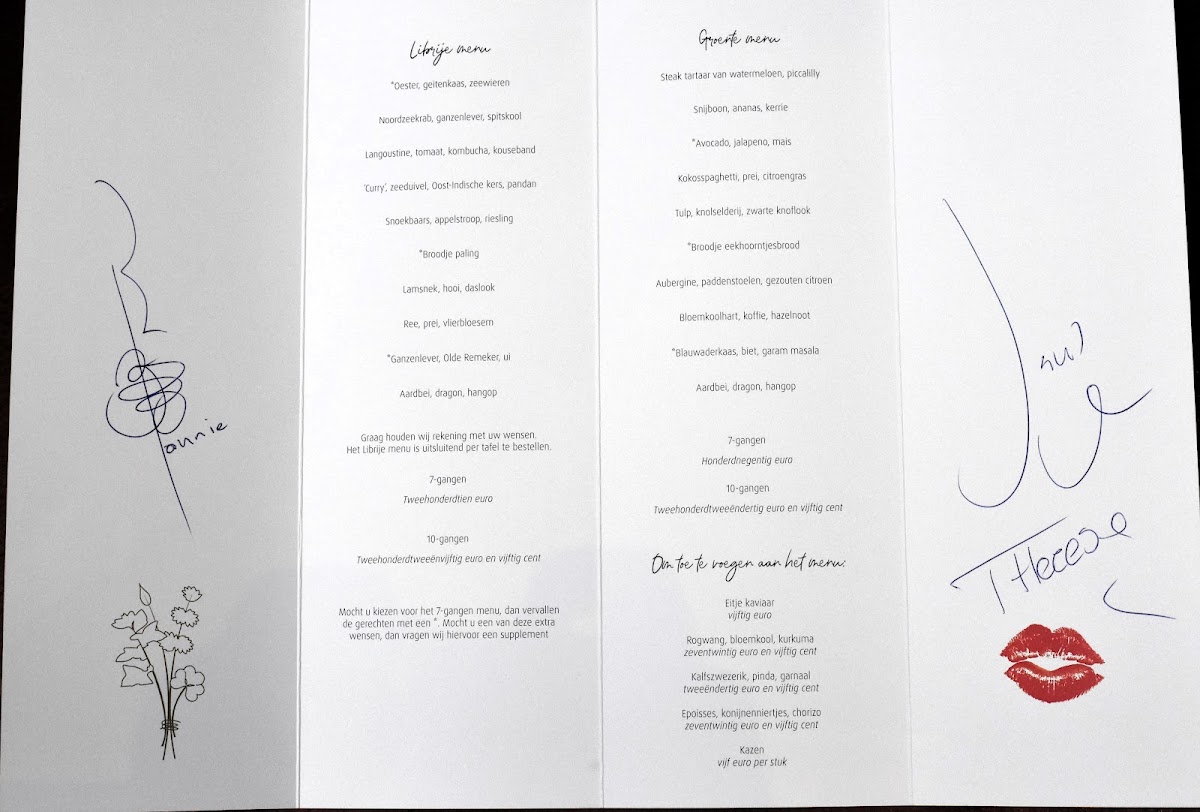 annie
Librije menu
*Oester, geitenkaas, zeewieren
Noordzeekrab, ganzenlever, spitskool
Langoustine, tomaat, kombucha, kouseband
'Curry', zeeduivel, Oost-Indische kers, pandan
Snoekbaars, appelstroop, riesling
*Broodje paling
Lamsnek, hooi, daslook
Ree, prei, vlierbloesem
*Ganzenlever, Olde Remeker, ui
Aardbei, dragon, hangop
Graag houden wij rekening met uw wensen.
Het Librije menu is uitsluitend per tafel te bestellen.
7-gangen
Tweehonderdtien euro
10-gangen
Tweehonderdtweeënvijftig euro en vijftig cent
Mocht u kiezen voor het 7-gangen menu, dan vervallen
de gerechten met een *. Mocht u een van deze extra
wensen, dan vragen wij hiervoor een supplement
Groente menu
Steak tartaar van watermeloen, piccalilly
Snijboon, ananas, kerrie
*Avocado, jalapeno, mais
Kokosspaghetti, prei, citroengras
Tulp, knolselderij, zwarte knoflook
*Broodje eekhoorntjesbrood
Aubergine, paddenstoelen, gezouten citroen
Bloemkoolhart, koffie, hazelnoot
*Blauwaderkaas, biet, garam masala
Aardbei, dragon, hangop
7-gangen
Honderdnegentig euro
10-gangen
Tweehonderdtweeëndertig euro en vijftig cent
Om toe te voegen aan het menu:
Eitje kaviaar
vijftig euro
Rogwang, bloemkool, kurkuma
zeventwintig euro en vijftig cent
Kalfszwezerik, pinda, garnaal
tweeëndertig euro en vijftig cent
Epoisses, konijnenniertjes, chorizo
zeventwintig euro en vijftig cent
Kazen
vijf euro per stuk
Therese